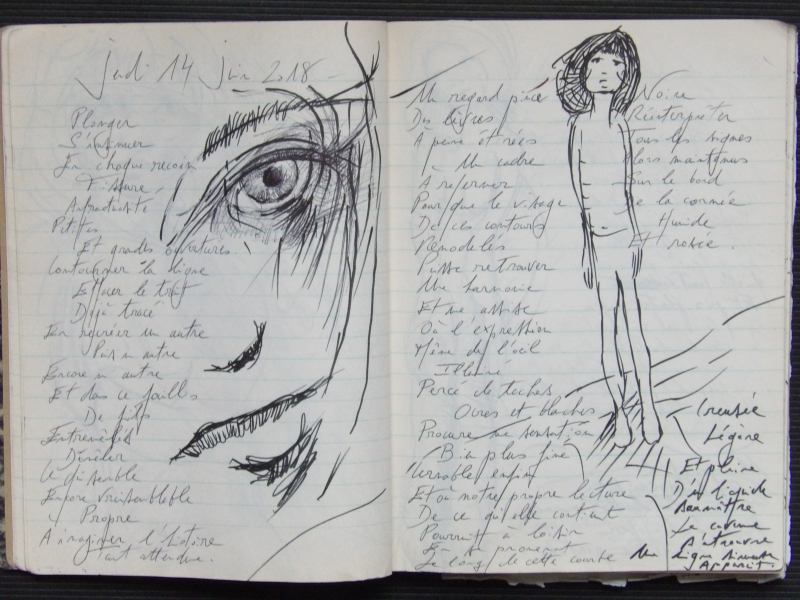 Jeudi 14 Juin 2018
Plonger
S'insinuer
En chaque recoin
Fissure
Anfractuosité
Petites
Et grandes ouvertures
Contourner la ligne
Effacer le trait
Déjà tracé
En recréer un autre
Puis un autre
Encore un autre
Et dans ce fouillis
De fils
Entremêlés
Démêler
Le
Encore vraisemblable
Propre
A imaginer l'histoire
Tant attendue.
Un regard
Des lignes
À peine étirées
Un cadre
A refermer
Pour que le visage
De ces contours
Remodelés
Puisse retrouver
Une harmonie
Et une assise
Où l'expression
Même de l'oeil
Percé de taches
Ocres et blanches
Procure une sensation
Bien plus fine
enfin
Et où notre propre lecture
De ce qu'elle contient
Pourrait à loisir
En se promenant
Le long de cette courbe
Noire
Réinterpréter
Tous les signes
Alors maintenus
Sur le bord
De la cornée
Humide
Et rosée.
Creusée
Légère
Et pleine
D'un liquide
Le
Ligne
Apparait.